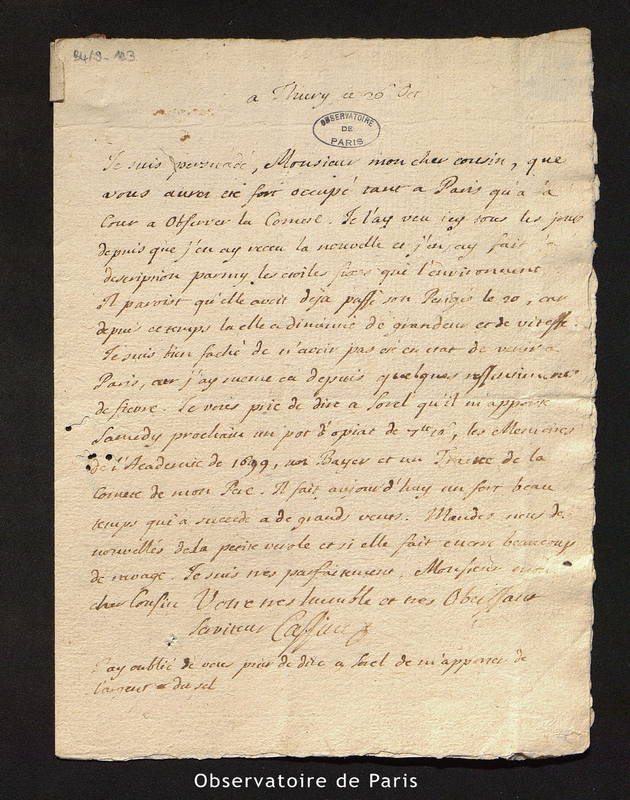 B4/9-123
a Thury ce 26e Oct
OBSERVATOIRE
DE
PARIS
Je suis persuadé, Monsieur mon cher cousin, que
vous aurez eté fort occupé tant a Paris qu'a la
Cour a Observer la Comete. Je l'ay veu icy tous les jours
depuis que j'en ay receu la nouvelle et j'en ay fait la
description parmy les etoiles fixes qui l'environnent
Il paroist qu'elle avoit deja passé son Perigée le 20, car
depuis ce temps la elle a diminué de grandeur et de vitesse.
Je suis bien faché de n'avoir pas été en etat de venir a
Paris, car j'ay meme eu depuis quelques
de fievre. Je vous prie de dire a Sorel qu'il m'apporte
Samedy prochain un pot d'opiat de, les Memoires
de l'Academie de 1699, mon Bayer et un Traitté de la
Comete de mon Pere. Il fait aujourd'huy un fort beau
temps qui a succedé a de grands vents. Mandez nous des
nouvelles de la petite verole et si elle fait encore beaucoup
de ravage. Je suis tres parfaitement, Monsieur mon
cher Cousin Votre tres humble et tres Obeissant
Serviteur Cassini
J'ay oublié de vous prier de dire a Sorel de m'apporter de
du sel
Observatoire de Paris